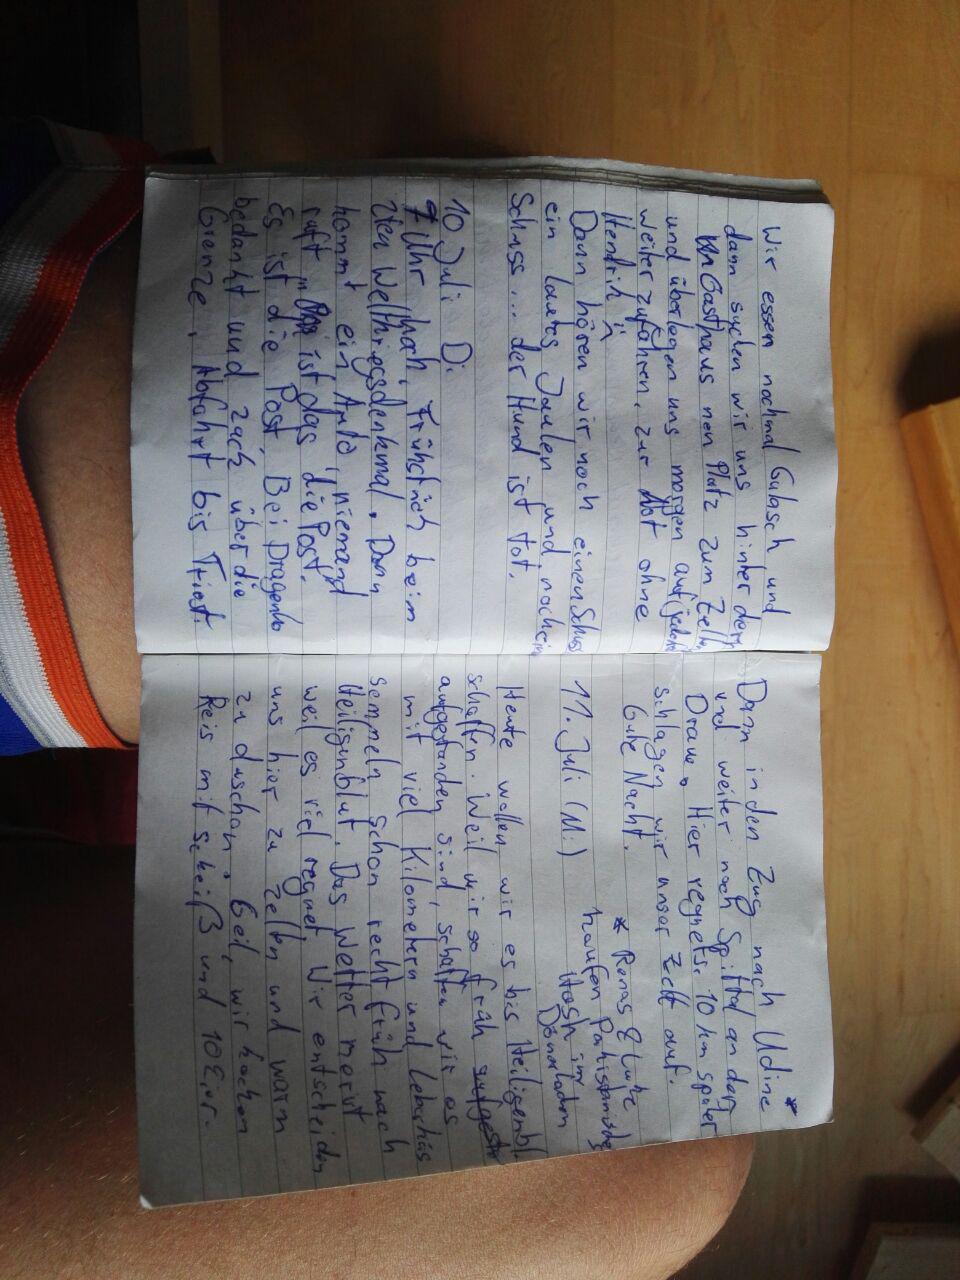 Wir essen nochmal Gulasch und
dann suchen wir uns hinter dem
Gasthaus nen Platz zum Zelten
und überlegen uns morgen auf jeden
weiterzufahren, zur Not ohne
Hendrik
Dann hören wir noch einen Schuss
ein lautes Jaulen und noch ein
Schuss... der Hund ist tot.
10 Juli Di
7 Uhr hoch, Frühstück beim
2ten Weltkriegsdenkmal. Dann
kommt ein Auto, niemand
ruft "das ist das die Post."
Es ist die Post. Bei Dragenko
bedankt und zack über die
Grenze, Abfahrt bis Triest.
Dann in den Zug nach Udine *
und weiter nach Spittal an der
Drau. Hier regnets. 10 km später
schlagen wir unser Zelt auf.
Gute Nacht.
* Renas E
haufen
Hash im
Dönerladen
11. Juli (Mi)
Heute wollen wir es bis Heiligenbl
schaffen. Weil wir so früh aufgest
aufgestanden sind, schaffen wir es
mit viel Kilometern und Leberkäs
semmeln schon recht früh nach
Heiligenblut. Das Wetter nervt
weil es viel regnet. Wir entscheiden
uns hier zu zelten und warm
zu duschen. Geil, wir kochen
Reis mit scheiß und 10 Eier.